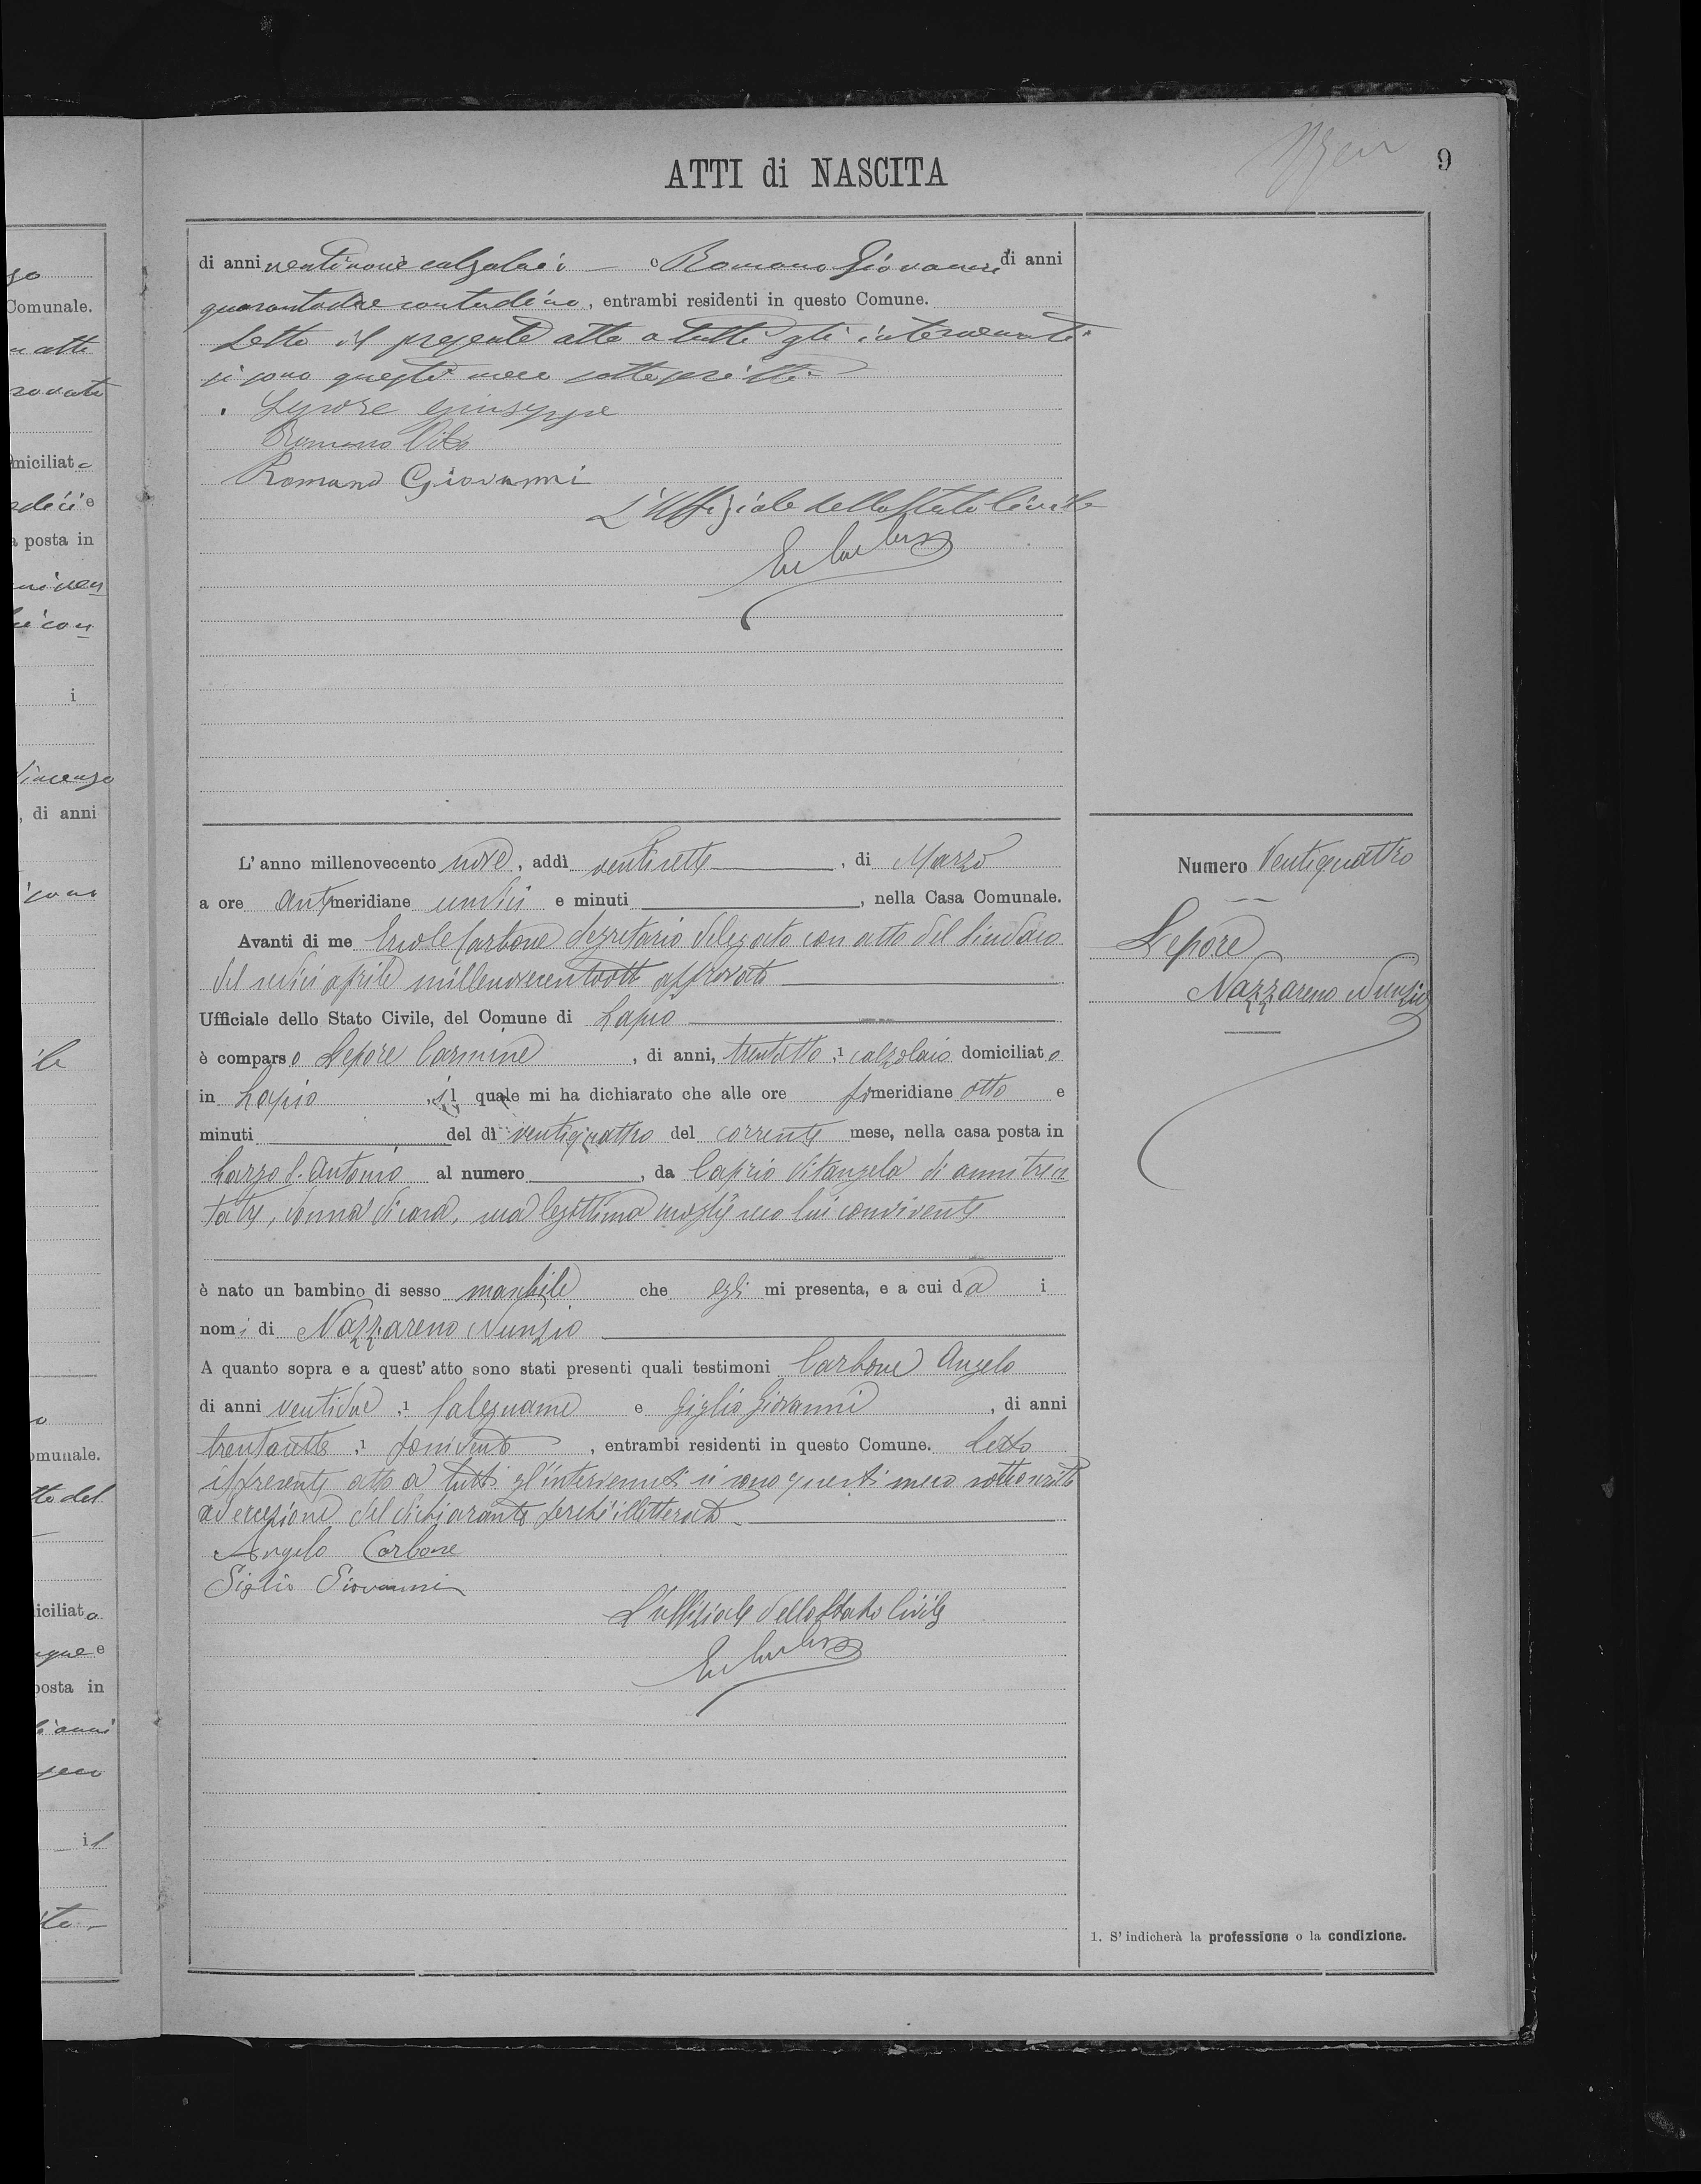 9
ATTI di NASCITA
di anni ventinove calzolaio e Romano Giovanni di anni
quarantadue contadino, entrambi residenti in questo Comune.
Letto il presente atto a tutti gli intervenuti
si sono questi meco sottoscritti
Lepore Giuseppe
Romano Vito
Romano Giovanni
L'Uffiziale dello Stato Civile
L'anno millenovecento nove, addì ventisette, di Marzo
a ore antimeridiane undici e minuti, nella Casa Comunale.
Avanti di me Ercole Carbone Segretario delegato con atto del Sindaco
del sedici aprile millenovecentootto approvato
Ufficiale dello Stato Civile, del Comune di Lapio
è comparso Lepore Carmine, di anni, trentotto,1 calzolaio domiciliato
in Lapio, il quale mi ha dichiarato che alle ore pomeridiane otto e
minuti del dì ventiquattro del corrente mese, nella casa posta in
Largo S. Antonio al numero, da Caprio Vitangela di anni tren
tatre, donna di casa, sua legittima moglie seco lui convivente
è nato un bambino di sesso maschile che egli mi presenta, e a cui dà i
nomi di Nazzareno Nunzio
A quanto sopra e a quest'atto sono stati presenti quali testimoni Carbone Angelo
di anni ventidue,1 falegname e Giglio Giovanni, di anni
trentasette,1, entrambi residenti in questo Comune. Letto
il presente atto a tutti gl'intervenuti si sono questi meco sottoscritti
ad eccezione del dichiarante perchè illetterato
Angelo Carbone
Giglio Giovanni
L'uffiziale dello Stato Civile
Numero Ventiquattro
Lepore
Nazzareno Nunzio
1. S'indicherà la professione o la condizione.
Comunale.
posta in
i
Vincenzo
, di anni
posta in
il